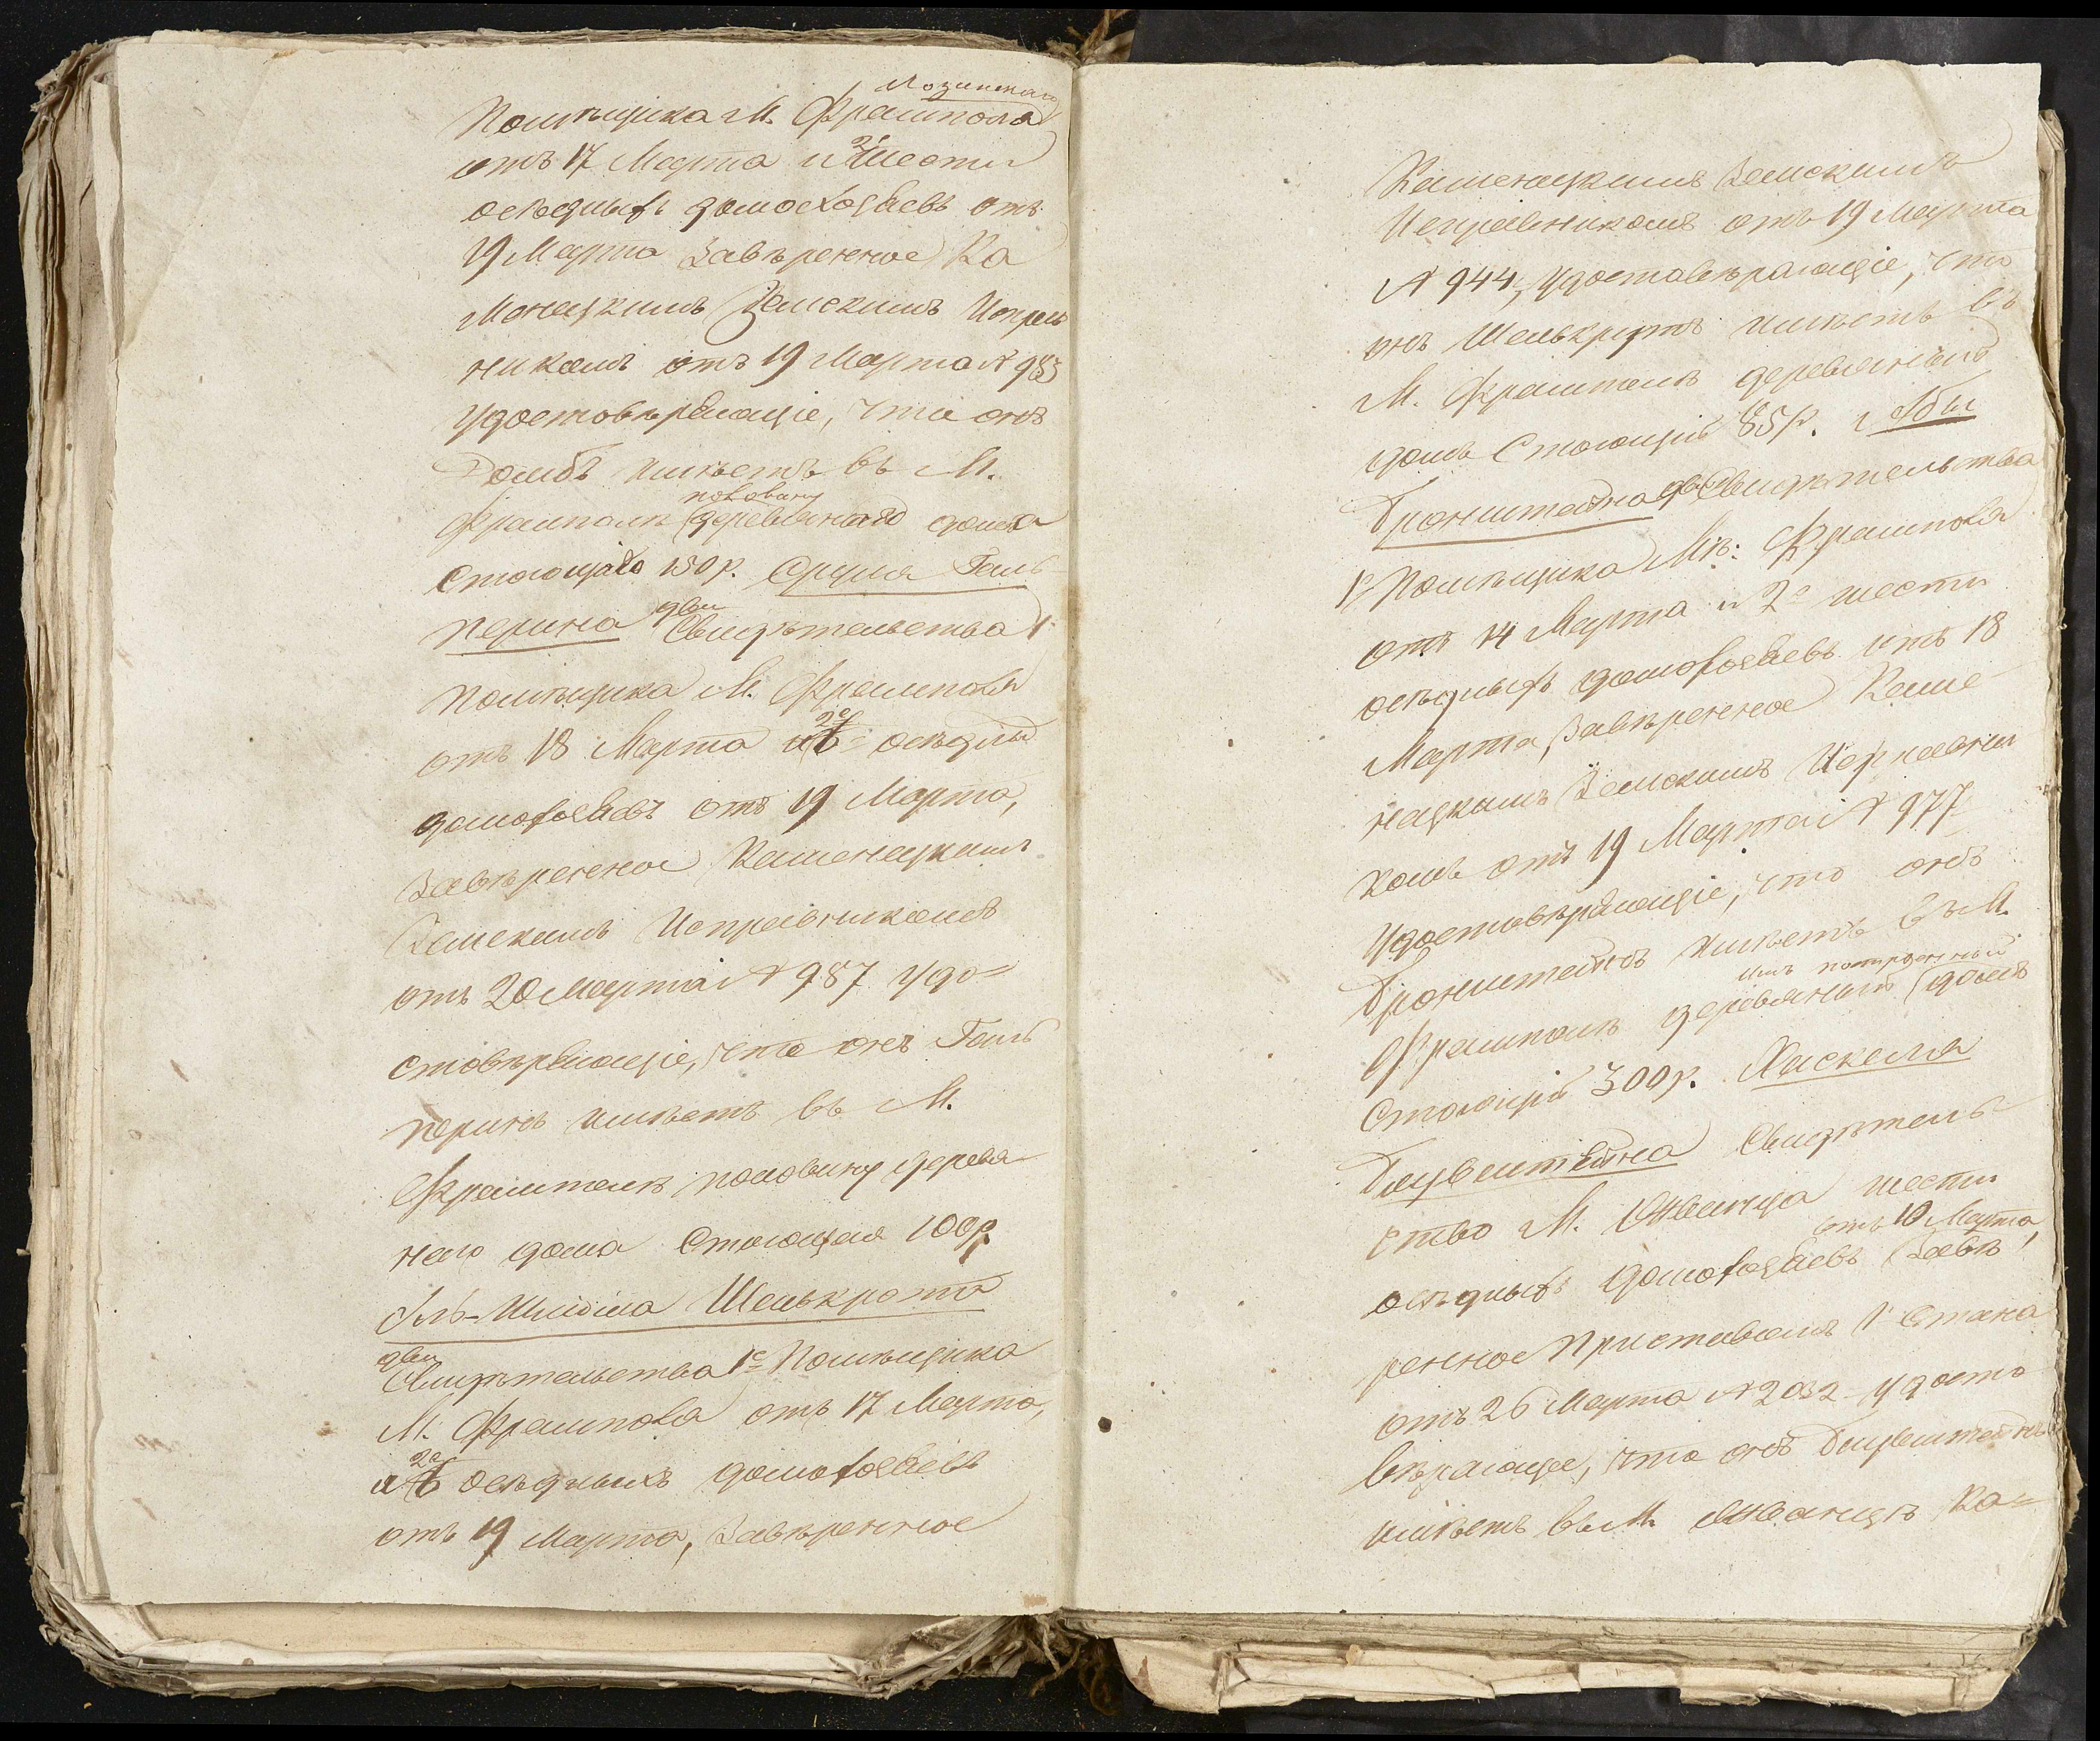 Лозинскаго
Помѣщика М. Фрампола
отъ 17 Марта и 2е шести
осѣдлыхъ домохозяевъ отъ
19 Марта Завѣренное Ка
менецкимъ Земскимъ Исправ
никомъ отъ 19 Марта № 983
Удостовѣряющіе, что онъ
Ромбъ имѣетъ въ М.
Фрамполѣ половину деревяннаго дома
Стоющаго 150 р. Сруля Галь
перина два Свидѣтельства 1е
Помѣщика М. Фрампола
отъ 18 Марта и 2е 6 осѣдлых
домохозяевъ отъ 19 Марта,
Завѣренное Каменецкимъ
Земскимъ Исправникомъ
отъ 20 Марта № 987 Удо=
стовѣряющіе, что онъ Галь
перинъ имѣетъ въ М.
Фрамполѣ половину деревя
наго дома Стоющая 100 р.
Шлёма Шенькрота
два Свидѣтельства 1е Помѣщика
М. Фрампола отъ 17 Марта,
и 2е 6 осѣдлыхъ домохозяевъ
отъ 19 Марта, Завѣренное
Каменецкимъ Земскимъ
Исправникомъ отъ 19 Марта
№ 944, Удостовѣряющіе, что
онъ Шенькрутъ имѣетъ въ
М. Фрамполѣ деревянный
домъ Стоющій 85 р. Абы
Бронштейна два Свидѣтельства
1е Помѣщика Мѣ: Фрампола
отъ 14 Марта и 2е шести
осѣдлыхъ домохозяевъ отъ 18
Марта, Завѣренное Каме
нецкимъ Земскимъ Исправни
комъ отъ 19 Марта № 977
Удостовѣряющіе, что онъ
Бронштейнъ имѣетъ въ М.
Фрамполѣ деревянный имъ построенный домъ
Стоющій 300 р. Хаскеля
Блувштейна Свидѣтель
ство М. Жванца шести
осѣдлыхъ домохозяевъ отъ 10 Марта, Завѣ
ренное Приставомъ 1 Стана
отъ 26 Марта № 2032 Удосто
вѣряющее, что онъ Блувштейнъ
имѣетъ въ М. Жванцѣ Ка=